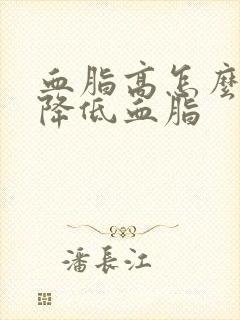 血脂高怎麼
降低血脂
潘長江